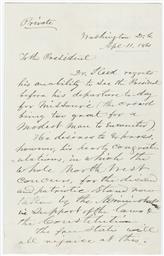 Private
Washington D.C.
Apl. 11, 1861
To the President
Dr. Reed regrets
his inability to see the President
before his departure to-day
for Missouri (the crowd
being too great for a
modest man to encounter)
He desires to express,
however, his hearty congratulations,
in which the
whole North West
concur, for the decided
and patriotic stand now
taken by the Administration
in support of the laws &
the Constitution.
The free States will
all rejoice at this.